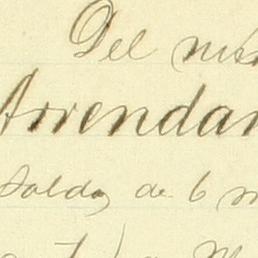 Del mis
Arrendam
Saldo de 6 m